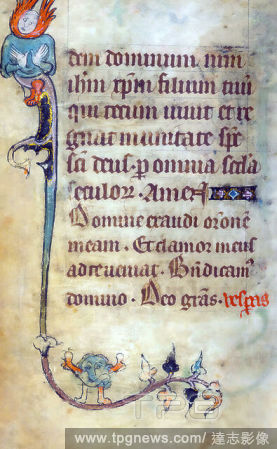 dem dominum nrm
ihm xpm filium tuu
qui tecum uiuit et re
gnat in unitate sps
sci deus · p omnia scła
seculor · Amen
Domine exaudi orōnē
meam · Et clamor meus
ad te ueniat · Bn̄dicam᷒
domino · Deo grās · vespas
TPG
www.tpgnews.com/ 達志影像